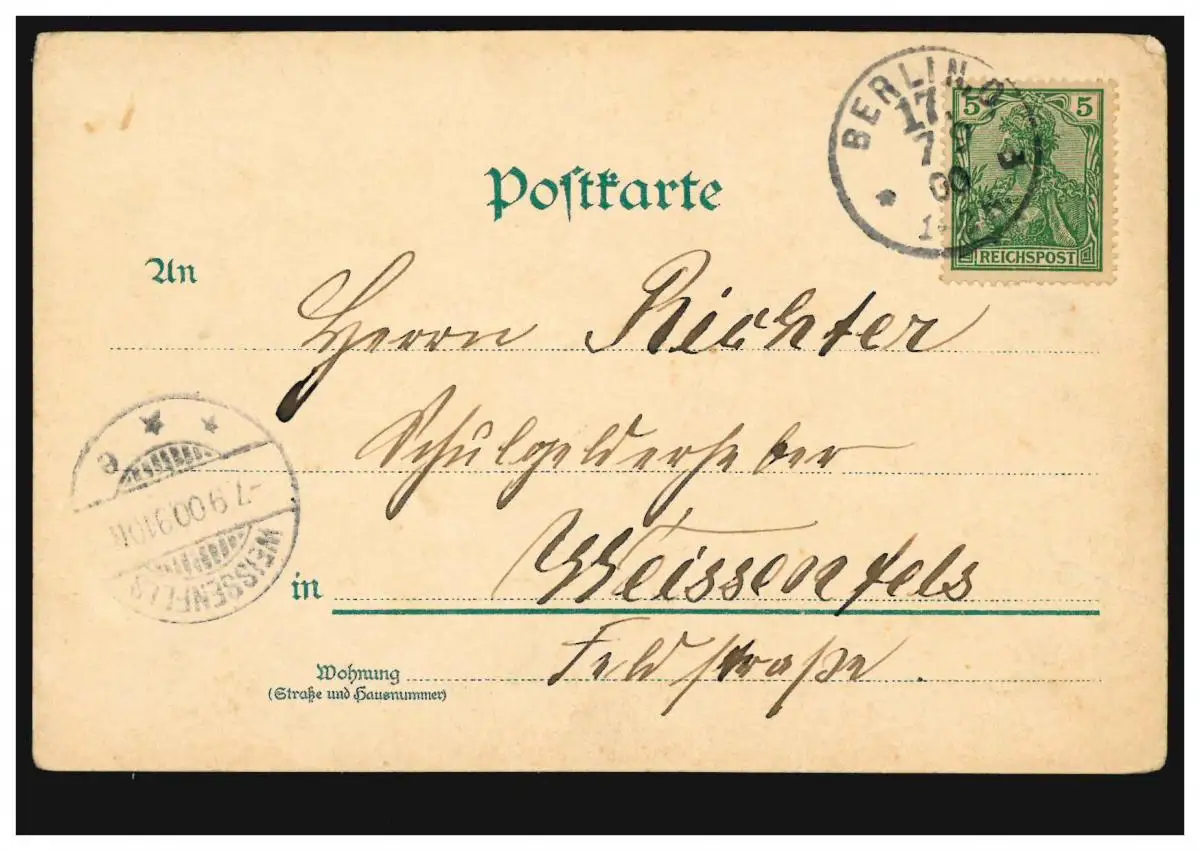 Postkarte
BERLIN
5 5
REICHSPOST
An
Herrn Richter
Schulgelderheber
-7.9.00.9-10N
WEISSENFELS
in Weissenfels
Feldstraße.
Wohnung
(Straße und Hausnummer)